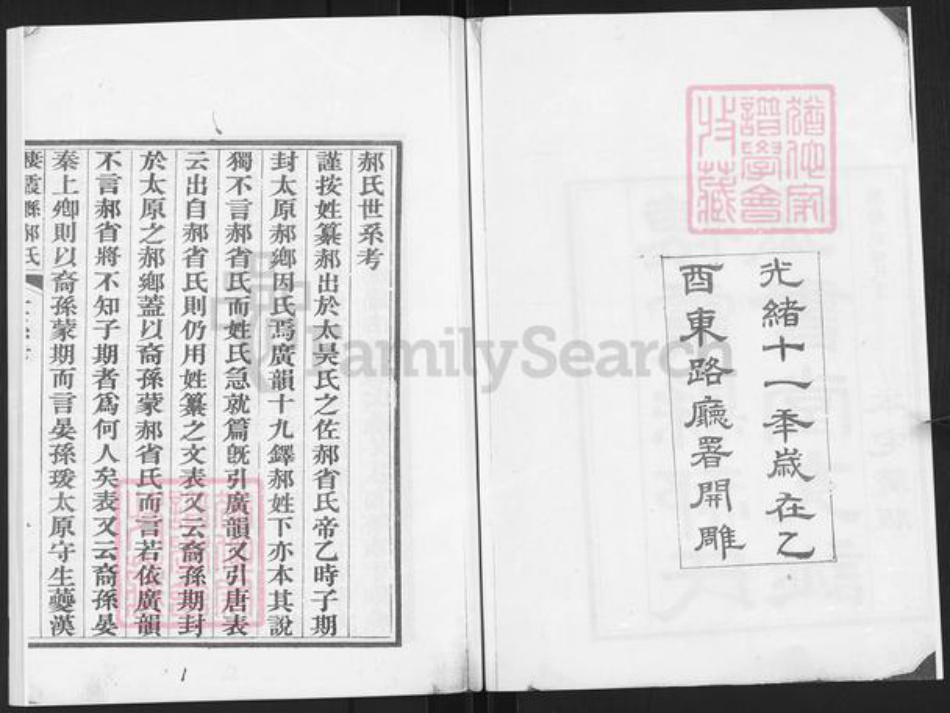 光緒十一秊歲在乙
酉東路廳署開雕
郝氏世系考
謹按姓纂郝出於太昊氏之佐郝省氏帝乙時子期
封太原郝鄉因氏焉廣韻十九鐸郝姓下亦本其說
獨不言郝省氏而姓氏急就篇旣引廣韻又引唐表
云出自郝省氏則仍用姓纂之文表又云裔孫期封
於太原之郝鄉蓋以裔孫蒙郝省氏而言若依廣韻
不言郝省將不知子期者爲何人矣表又云裔孫晏
秦上卿則以裔孫蒙期而言晏孫瑗太原守生夔漢
棲霞縣郝氏
1
FamilySearch